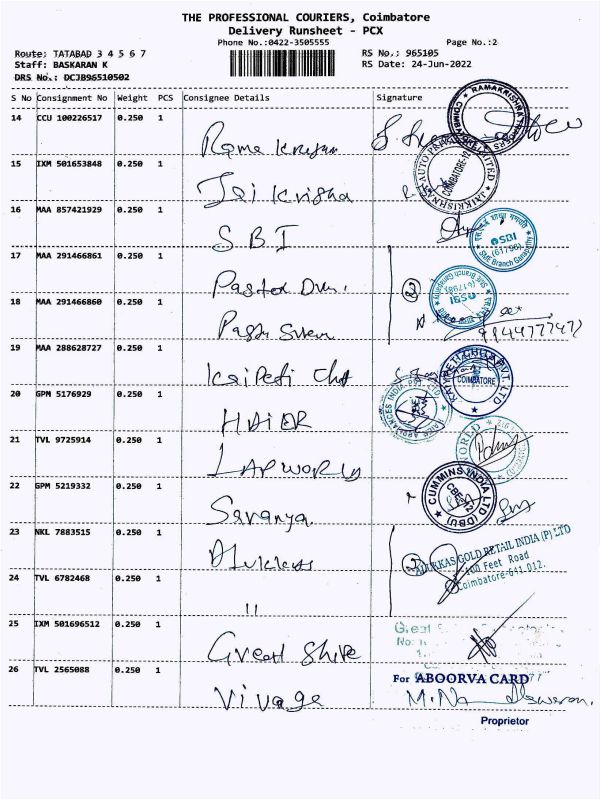 THE PROFESSIONAL COURIERS, Coimbatore
Delivery Runsheet - PCX
Phone No.:0422-3505555
Page No.:2
Route: TATABAD 3 4 5 6 7
RS No.: 965105
Staff: BASKARAN K
RS Date: 24-Jun-2022
DRS No.: DCJB96510502
S No Consignment No Weight PCS Consignee Details Signature
14 CCU 100226517 0.250 1
15 IXM 501653848 0.250 1 Jai Krishna
16 MAA 857421929 0.250 1 SBI
17 MAA 291466861 0.250 1
18 MAA 291466860 0.250 1
19 MAA 288628727 0.250 1
20 GPM 5176929 0.250 1 HAIER
21 TVL 9725914 0.250 1 LAPWORLD
22 GPM 5219332 0.250 1 Saranya
23 NKL 7883515 0.250 1
24 TVL 6782468 0.250 1 "
25 IXM 501696512 0.250 1 Great Shine
26 TVL 2565088 0.250 1 Vivage
RAMAKRISHNA TRADERS COIMBATORE
COIMBATORE-12
SBI
(61798)
SME Branch Ganapathy
9944777477
COIMBATORE
CUMMINS INDIA LTD (DBU)
CBE-12
ALUKKAS GOLD RETAIL INDIA (P) LTD
100 Feet Road
Coimbatore-641 012.
Great
No:
For ABOORVA CARD
Proprietor